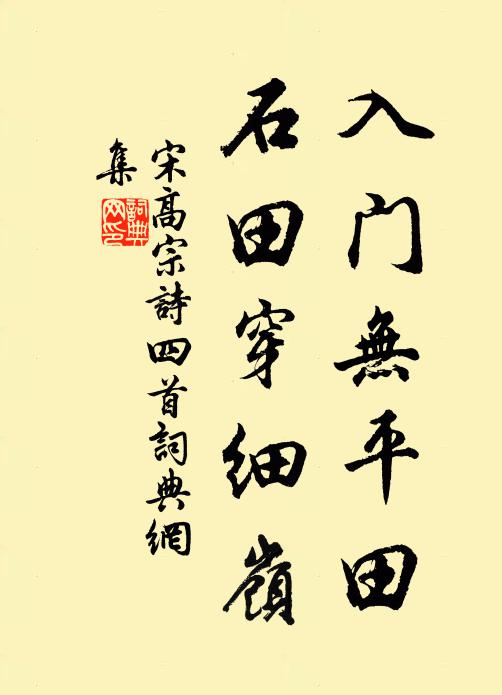 入門無平田
石田穿細嶺
宋高宗詩四首詞典網
集
詞典網印